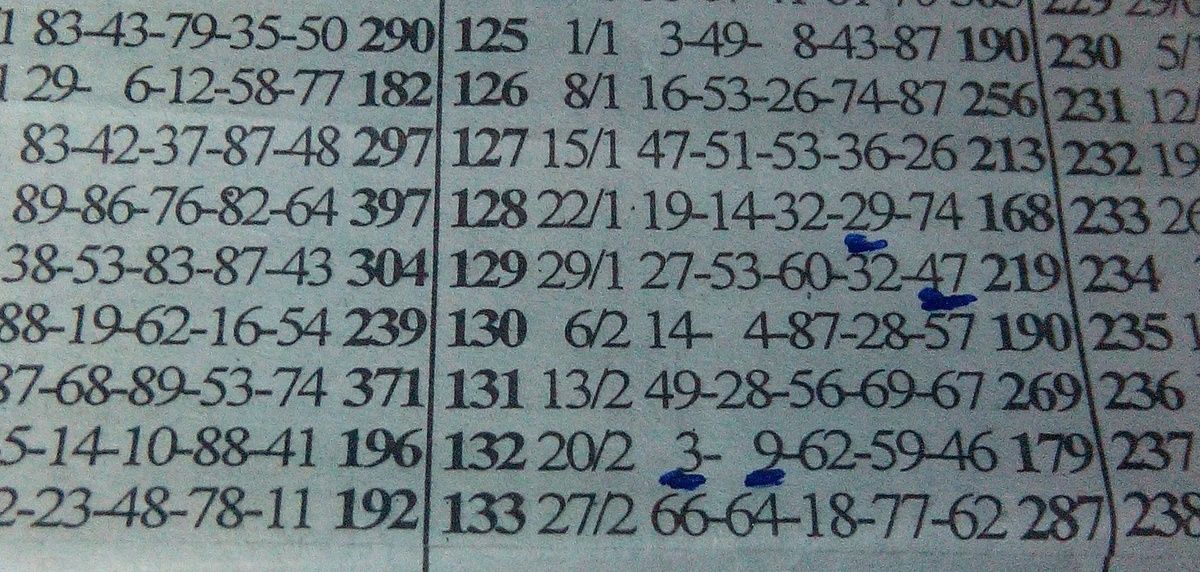 83-43-79-35-50 290 125 1/1 3-49- 8-43-87 190 230 5/
29- 6-12-58-77 182 126 8/1 16-53-26-74-87 256 231 12/
83-42-37-87-48 297 127 15/1 47-51-53-36-26 213 232 19
89-86-76-82-64 397 128 22/1 19-14-32-29-74 168 233
38-53-83-87-43 304 129 29/1 27-53-60-32-47 219 234
88-19-62-16-54 239 130 6/2 14- 4-87-28-57 190 235
87-68-89-53-74 371 131 13/2 49-28-56-69-67 269 236
5-14-10-88-41 196 132 20/2 3- 9-62-59-46 179 237
2-23-48-78-11 192 133 27/2 66-64-18-77-62 287 238